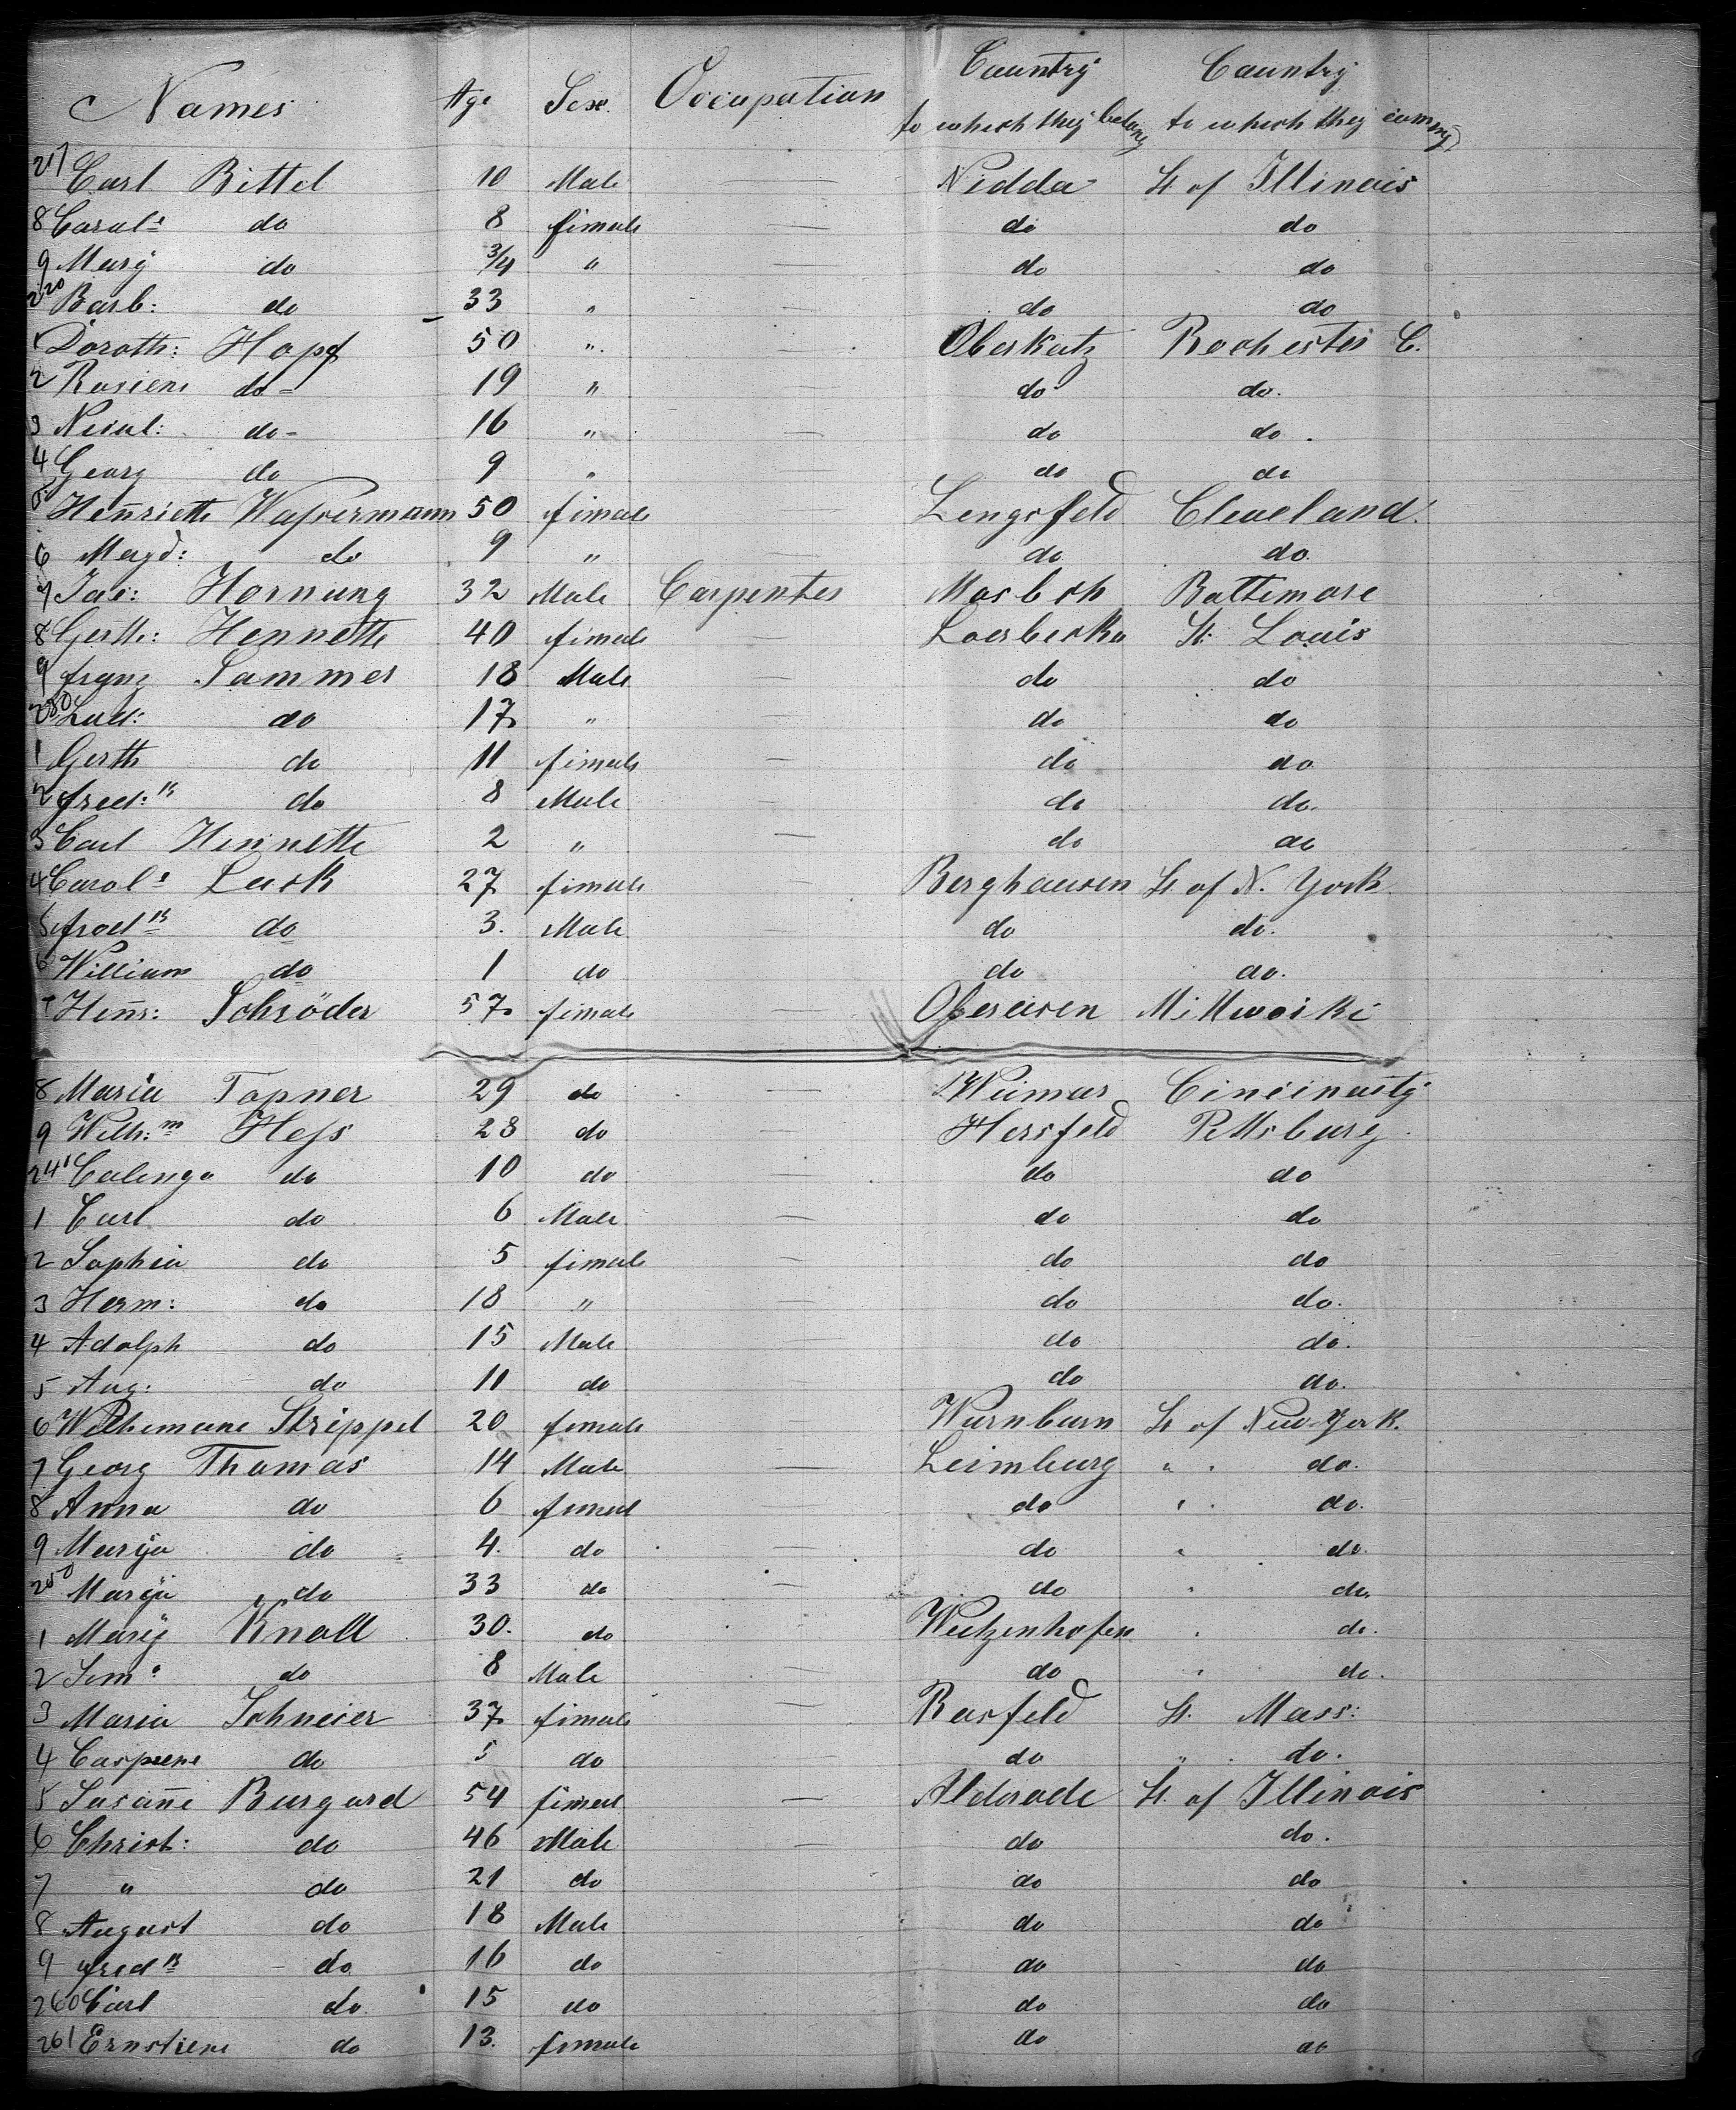 Names Age Sex Occupation Country to which they belong Country to which they coming
217 Carl Bittel 10 Male — Nidda St of Illinois
8 Carol:e do 8 female — do do
9 Mary do 3/4 " — do do
220 Barb: do 33 " — do do
1 Doroth: Hopf 50 " — Oberkatz Rochester C.
2 Rosiene do 19 " do do.
3 do 16 " — do do.
4 Georg do 9 " — do do
5 Henriette Wassermann 50 female — Lengsfeld Cleveland.
6 Magd: do 9 " — do do.
7 Jac: Hornung 32 Male Carpenter Mosbch Baltimore
8 Gerth: Hennette 40 female — St. Louis
9 franz Sammer 18 Male — do do
230 Lud: do 17 " — do do
1 Gerth do 11 female — do do
2 fred:k do 8 Male do do.
3 Carl Hennette 2 " — do do
4 Carol:e Luck 27 female — Berghausen St of N. York
5 fredk do 3. Male — do do.
6 William do 1 do — do do.
7 Henr: Schröder 57 female — Millwoiki
8 Maria Topner 29 do — Weimar Cincinnaty
9 Wilh:m Hess 28 do — Hersfeld Pittsburg
240 do 10 do — do do
1 Carl do 6 Male — do do
2 Sophia do 5 female — do do
3 Herm: do 18 " — do do.
4 Adolph do 15 Male — do do.
5 Aug: do 11 do — do do.
6 Wilhemene Strippel 20 female — Wurnburn St of New-York.
7 Georg Thomas 14 Male — Leimburg " " do.
8 Anna do 6 femal — do " " do.
9 Marÿa do 4. do — do " do.
250 Marÿa do 33 do — do " do.
1 Marÿ Knoll 30. do — Weitzenhofen " do.
2 do 8 Male — do " do.
3 Maria Schneier 37 female — Rasfeld St. Mass:
4 do 5 do — do " do.
5 Susañe Burgard 54 femal — Alderode St. of Illinois
6 Christ: do 46 Male — do do.
7 " do 21 do do do
8 August do 18 Male do do
9 fredk do 16 do do do
260 Carl do 15 do do do
261 Ernstiene do 13. female do do